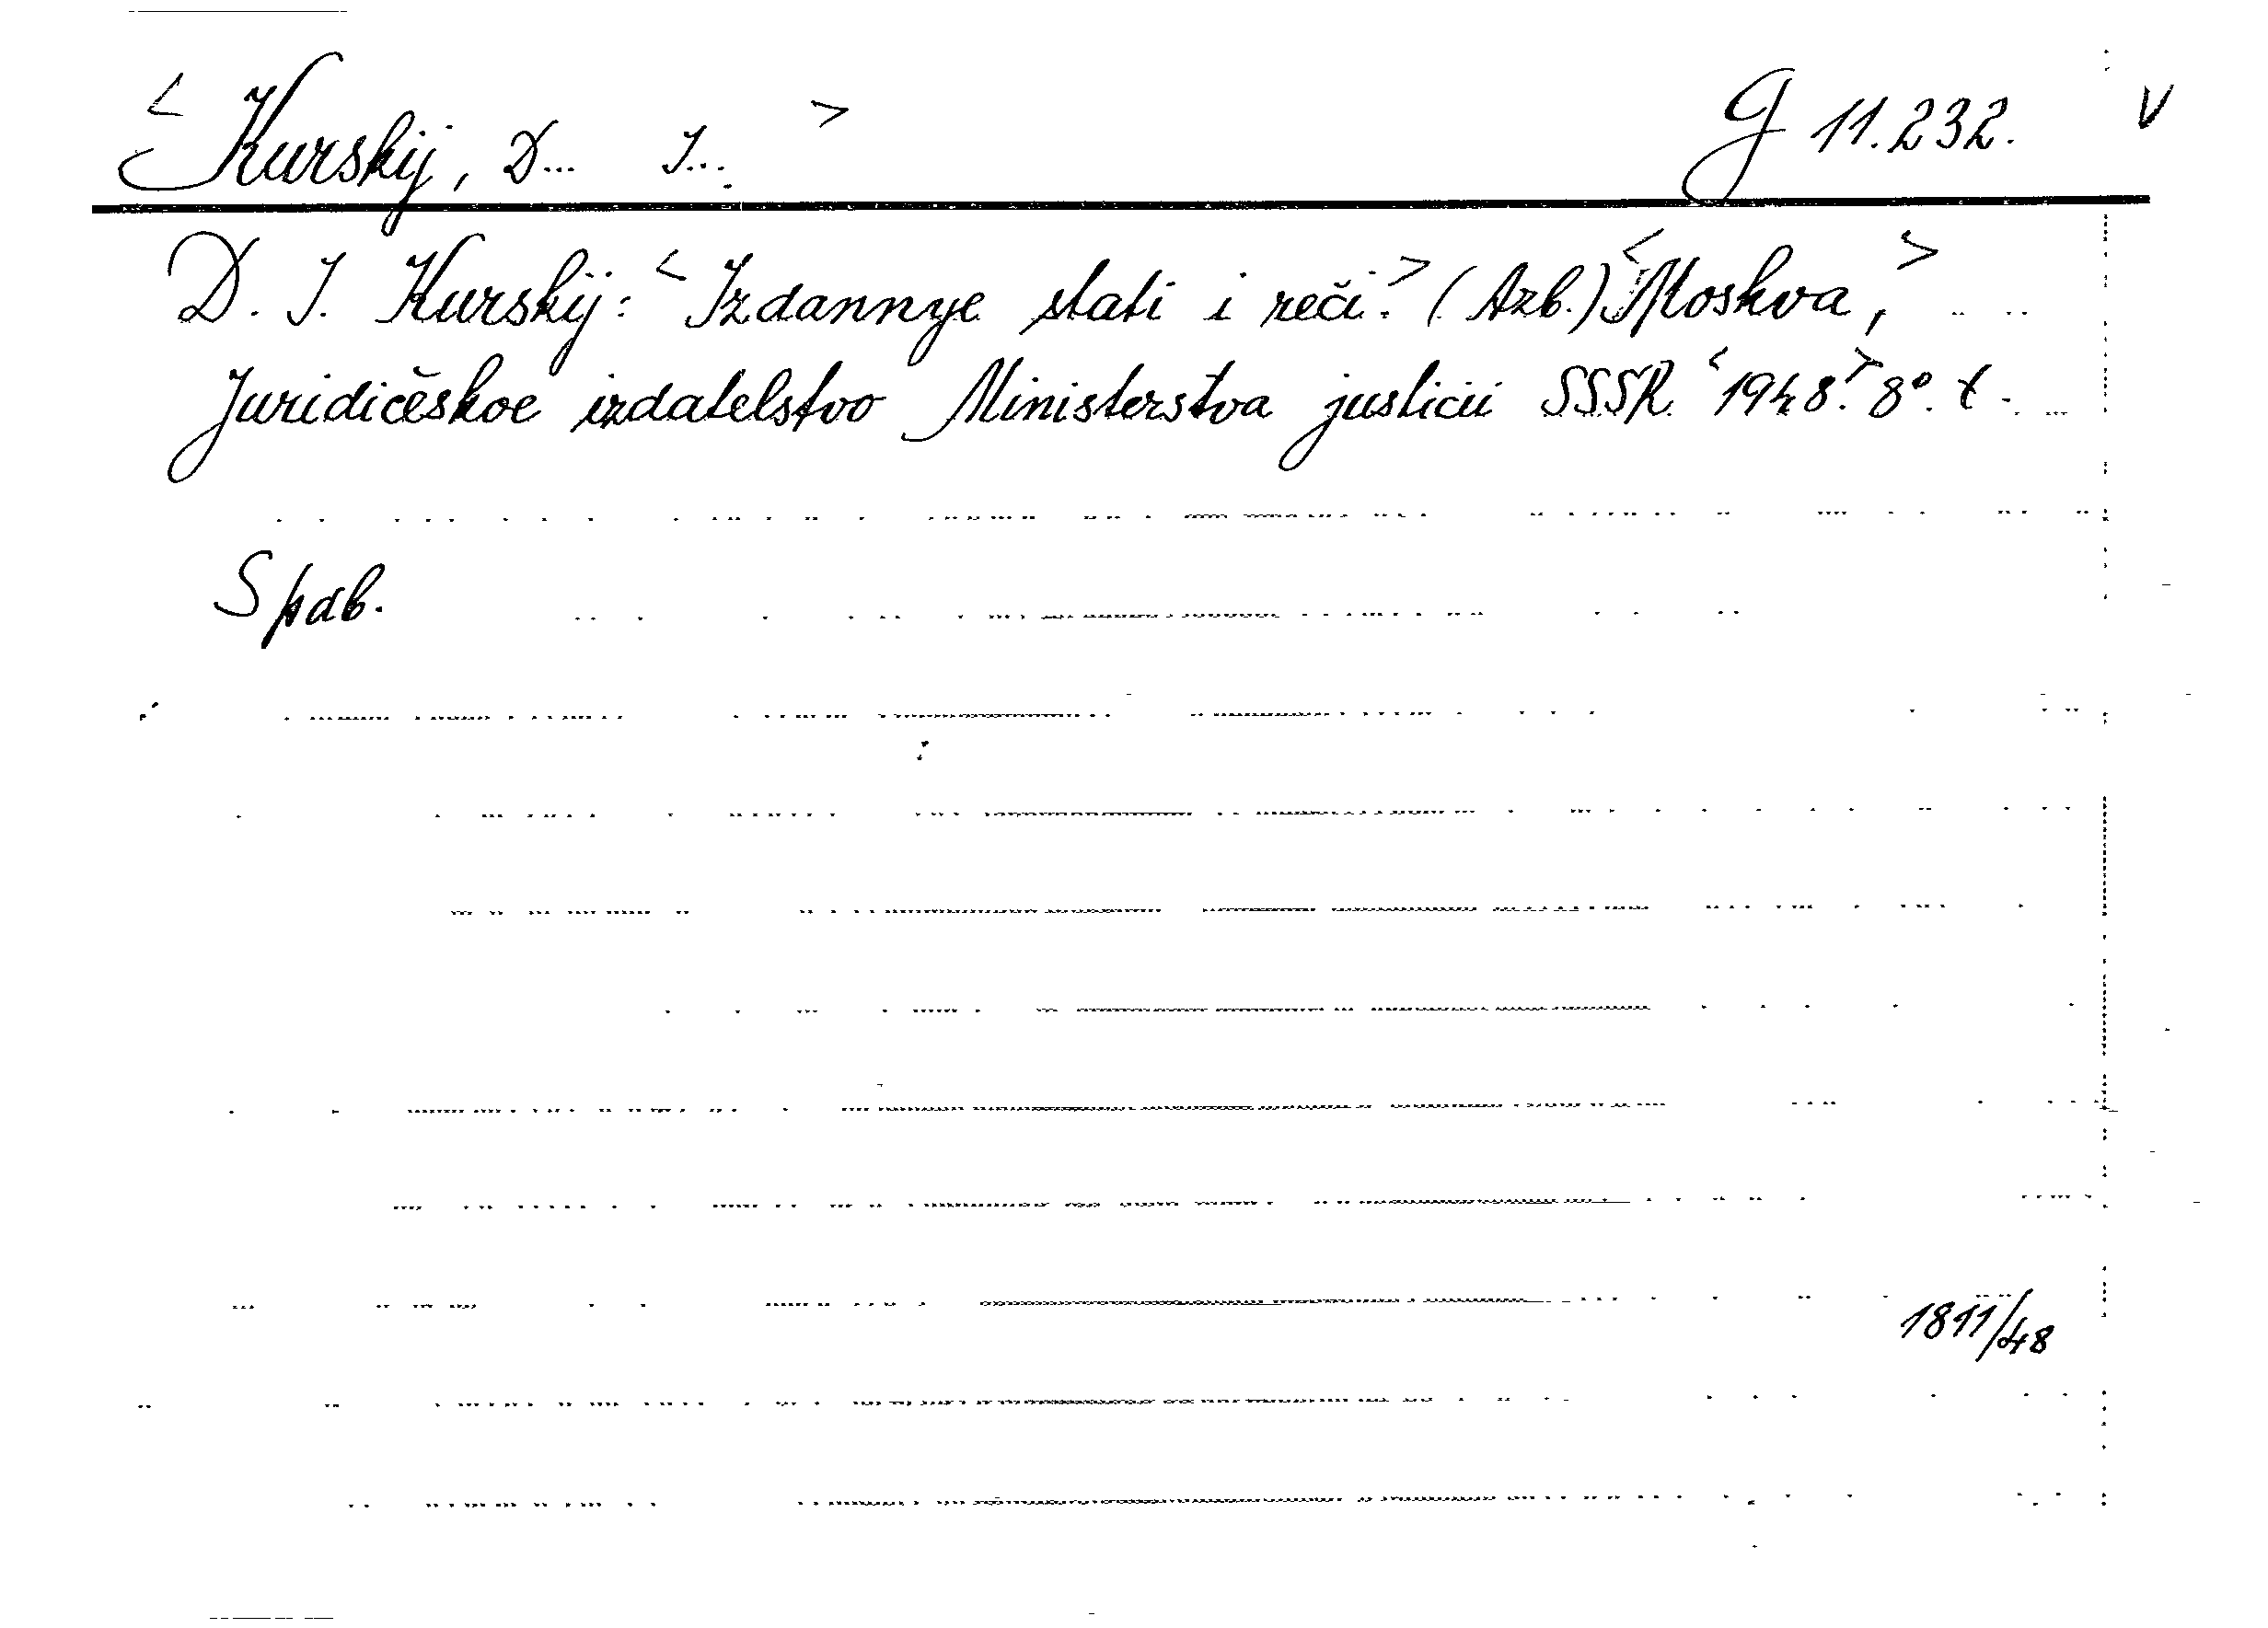 < Kurskij, D... I... > G 11.232. V
D. I. Kurskij: < Izdannye stati i reči. > (Azb.) < Moskva, >
Juridičeskoe izdatelstvo Ministerstva justicii SSSR. < 1948. > 8°. t.
S pdb.
1811/48